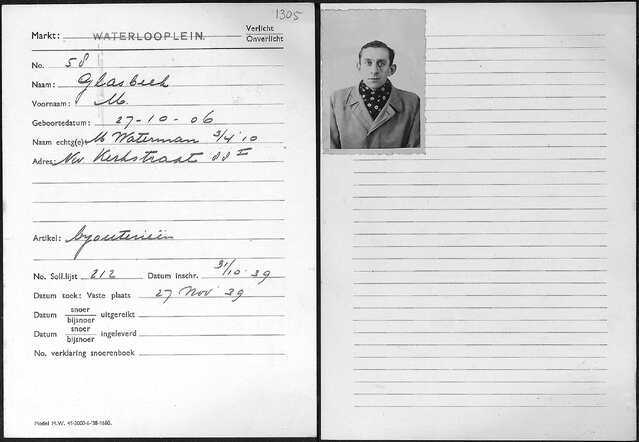 1305
Markt: WATERLOOPLEIN. Verlicht
Onverlicht
No. 58
Naam: Glasbeek
Voornaam: M.
Geboortedatum: 27-10-06
Naam echtg(e): M Waterman 3/4 '10
Adres: Nw Kerkstraat 88 I
Artikel: byouterieën
No. Soll.lijst 212 Datum inschr. 31/10 '39
Datum toek: Vaste plaats 27 Nov '39
Datum snoer
bijsnoer uitgereikt
Datum snoer
bijsnoer ingeleverd
No. verklaring snoerenboek
Model M.W. 41-3000-6-'38-1680.